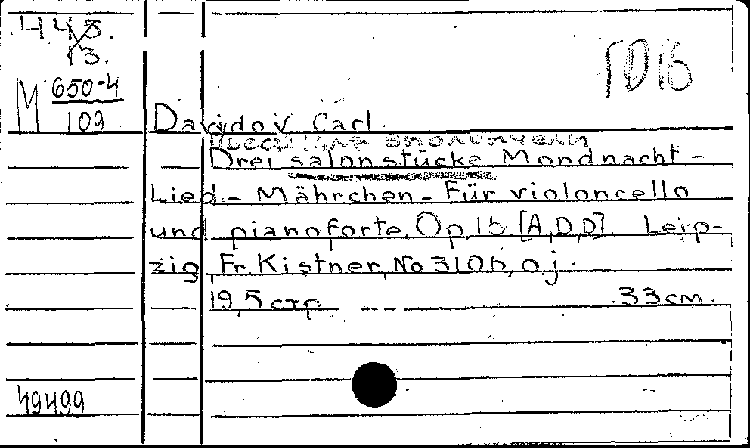 443.
13.
M 650-4
109
ГД 16
Davidov Carl.
Drei salonstücke Mondnacht -
Lied.- Mährchen - Für violoncello
und pianoforte. Op.16 [A,D,D] Leip-
zig, Fr. Kistner, No 3106, o j.
19,5 стр. -- 33 cm.
49499